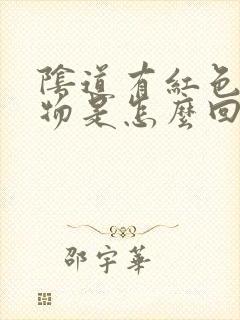 陰道有紅色
物是怎麼回
邵宇華